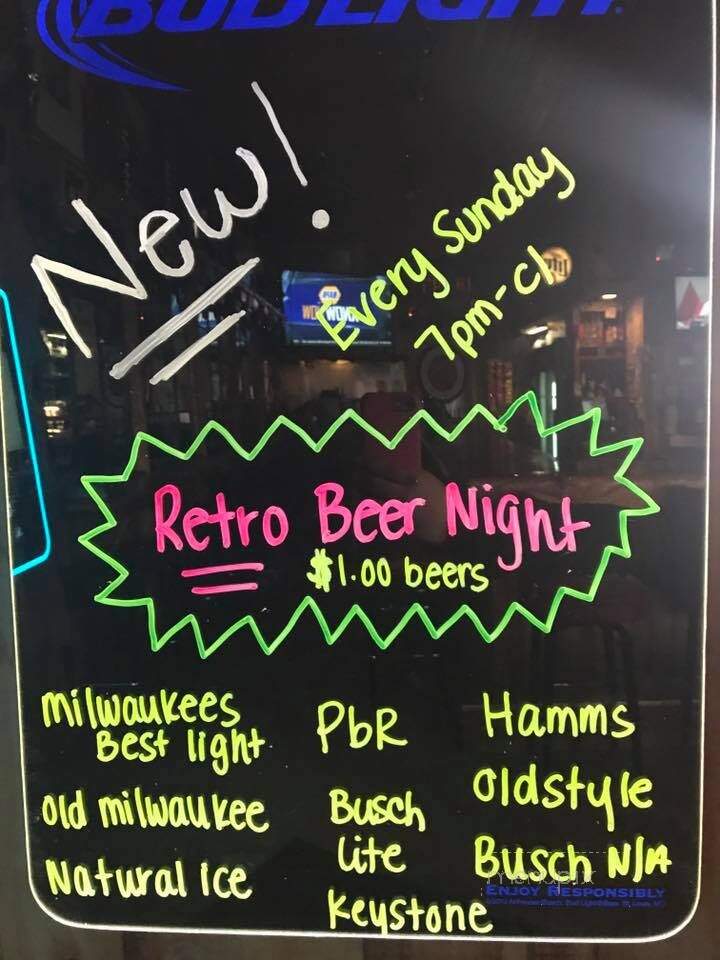 BUD LIGHT.
New!
Every Sunday
7pm-cl
Retro Beer Night
$1.00 beers
milwaukees
Best light
PbR
Hamms
old milwaukee
Busch
Lite
oldstyle
Natural ice
Keystone
Busch N/A
ENJOY RESPONSIBLY